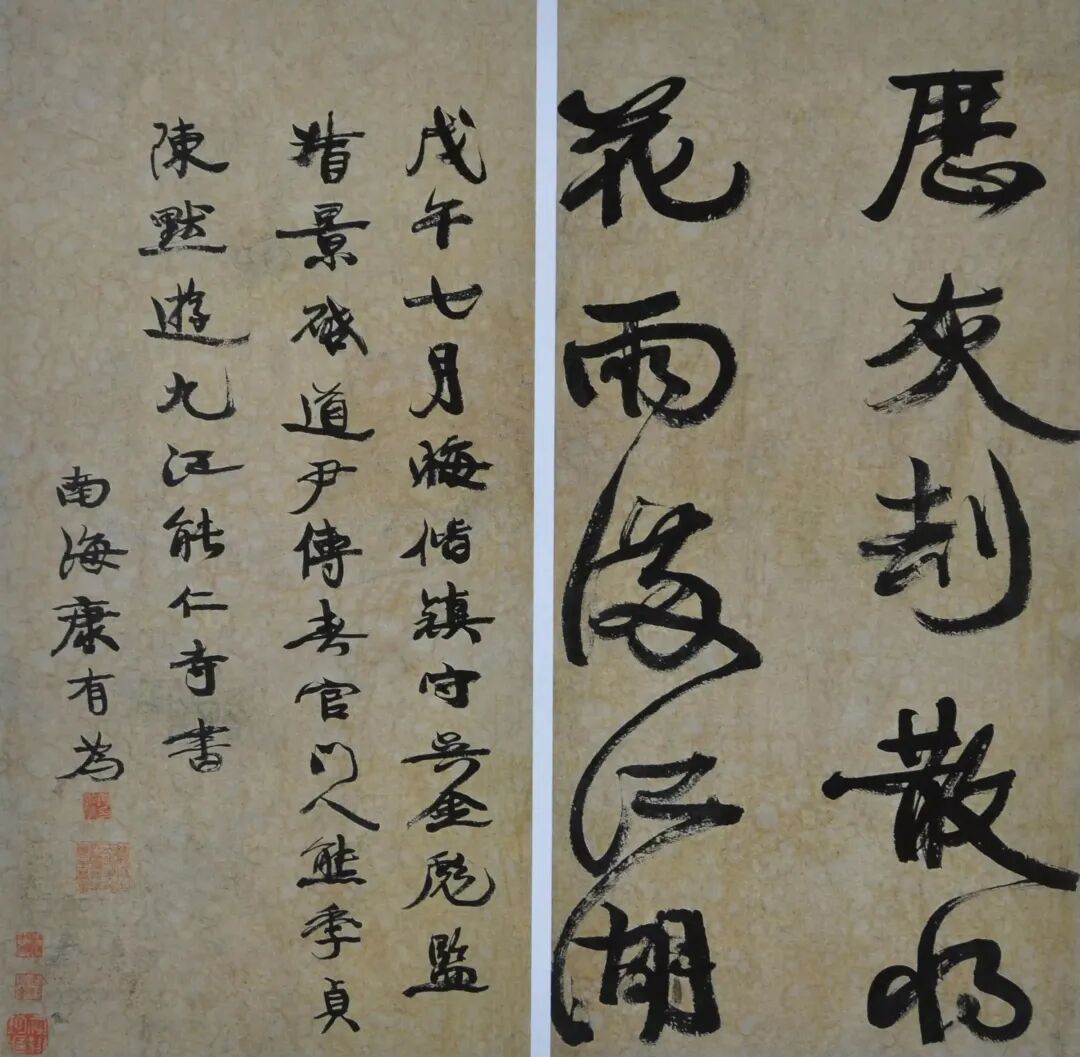 歷劫散
花雨江湖
戊午七月晦偕鎮守吳金彪監
督景啟道尹傅春官門人熊季貞
陳默遊九江能仁寺書
南海康有為